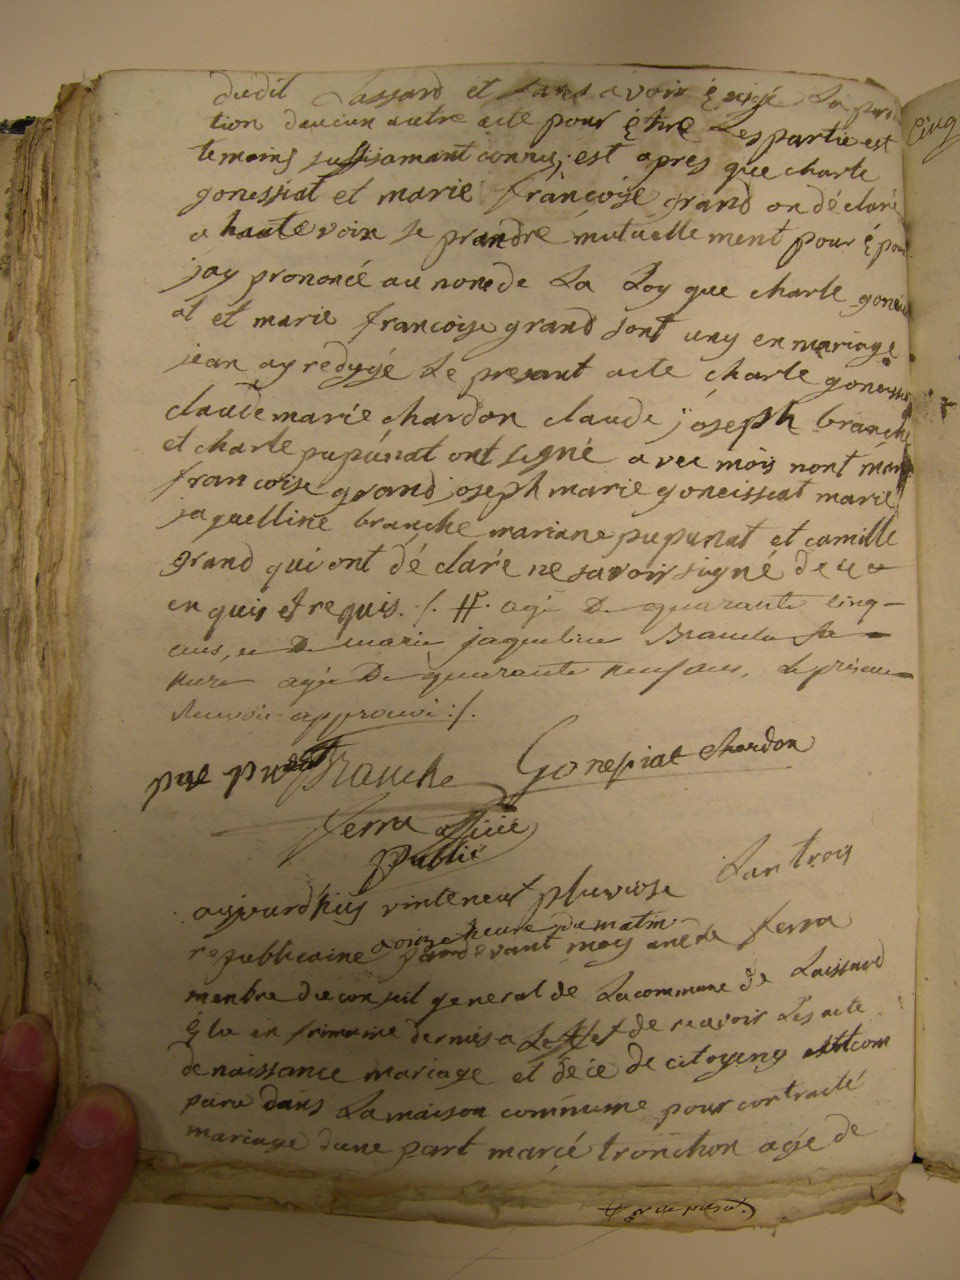 dudit Lassard et sans avoir exigé La paru
tion daucun autre acte pour Être Les partie est
temoins suffisamant connus, est apres que charle
gonessiat et marie françoise grand on déclaré
a haute voix se prandre mutuellement pour épou
jay prononcé au nom de La Loy que charle goness
at et marie francoise grand sont uny en mariage
jean ay redygé Le presant acte charle goneissi
claude marie chardon claude joseph branche
et charle pupunat ont signé avec mois nont marie
francoise grand joseph marie goneissiat marie
jaquelline branche mariane pupunat et camille
grand qui ont déclaré ne savoir signé de ce
enquis et requis ./. #. agé De quarante cinq
ans, et De marie jaqueline Branche sa
mere agée De quarante neuf ans, Le présent
Renvoi approuvé :/.
Branche Gonessiat chardon
ferra officié
public
aujourdhuy vinteneuf pluviose Lan trois
republicaine a onze heure du matin pardevant moy ferra
menbre du conseil general de La commune de Laissard
Élu en frimaire dernier a Leffet de recevoir Les acte
de naissance mariage et décé de citoyens est com
paru dans La maison commune pour contracté
mariage dune part marié tronchon agé de
Cinq